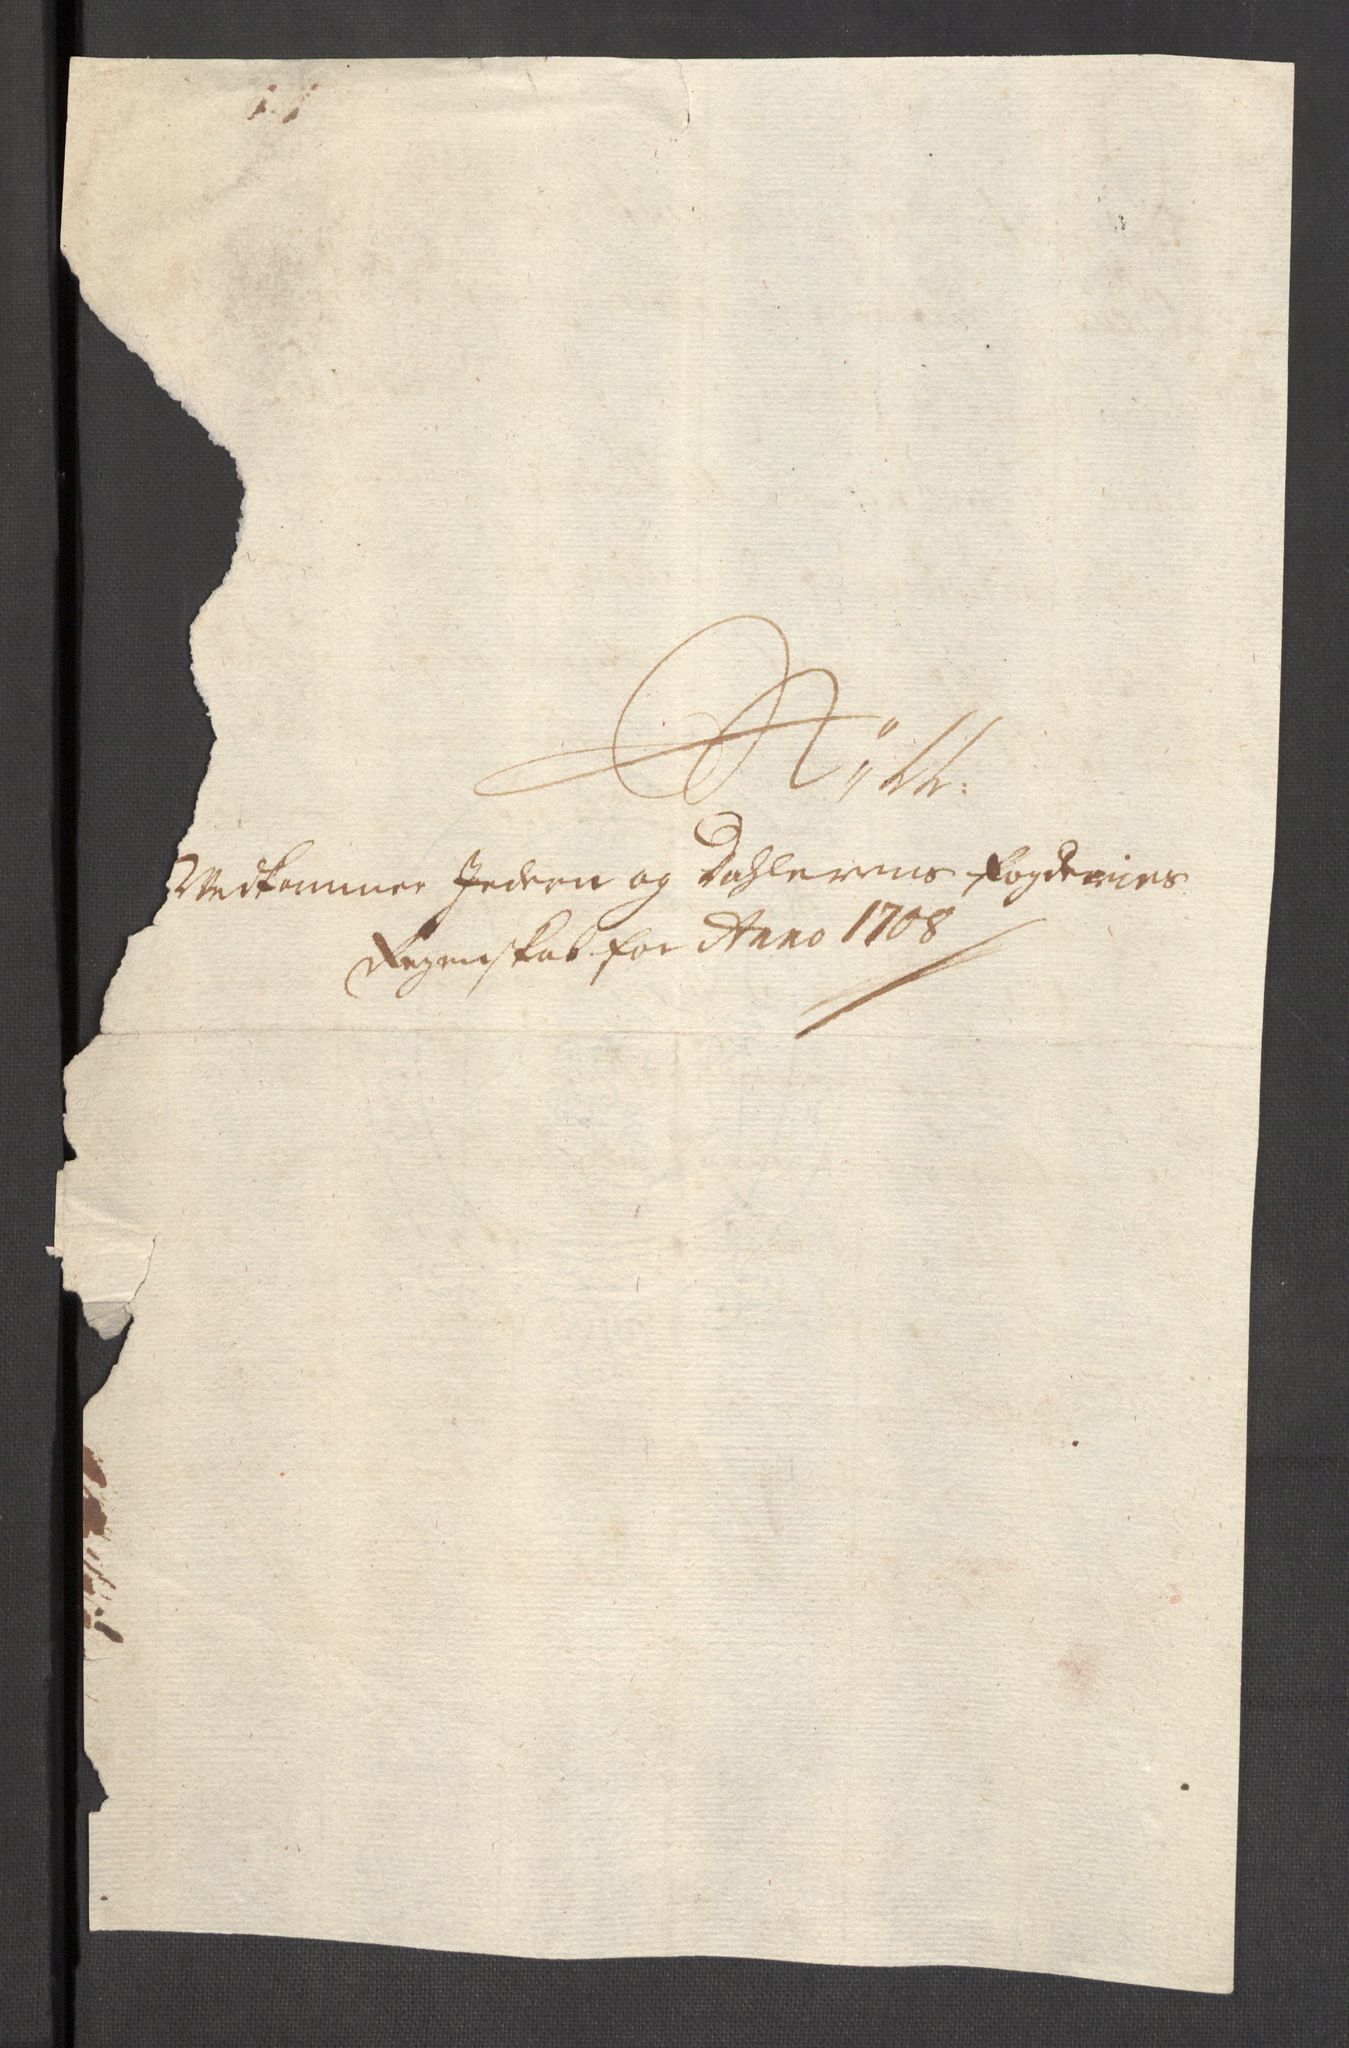 Vedkommer Jederen og Dahlernes Fogderies
Regenskab for Anno 1708